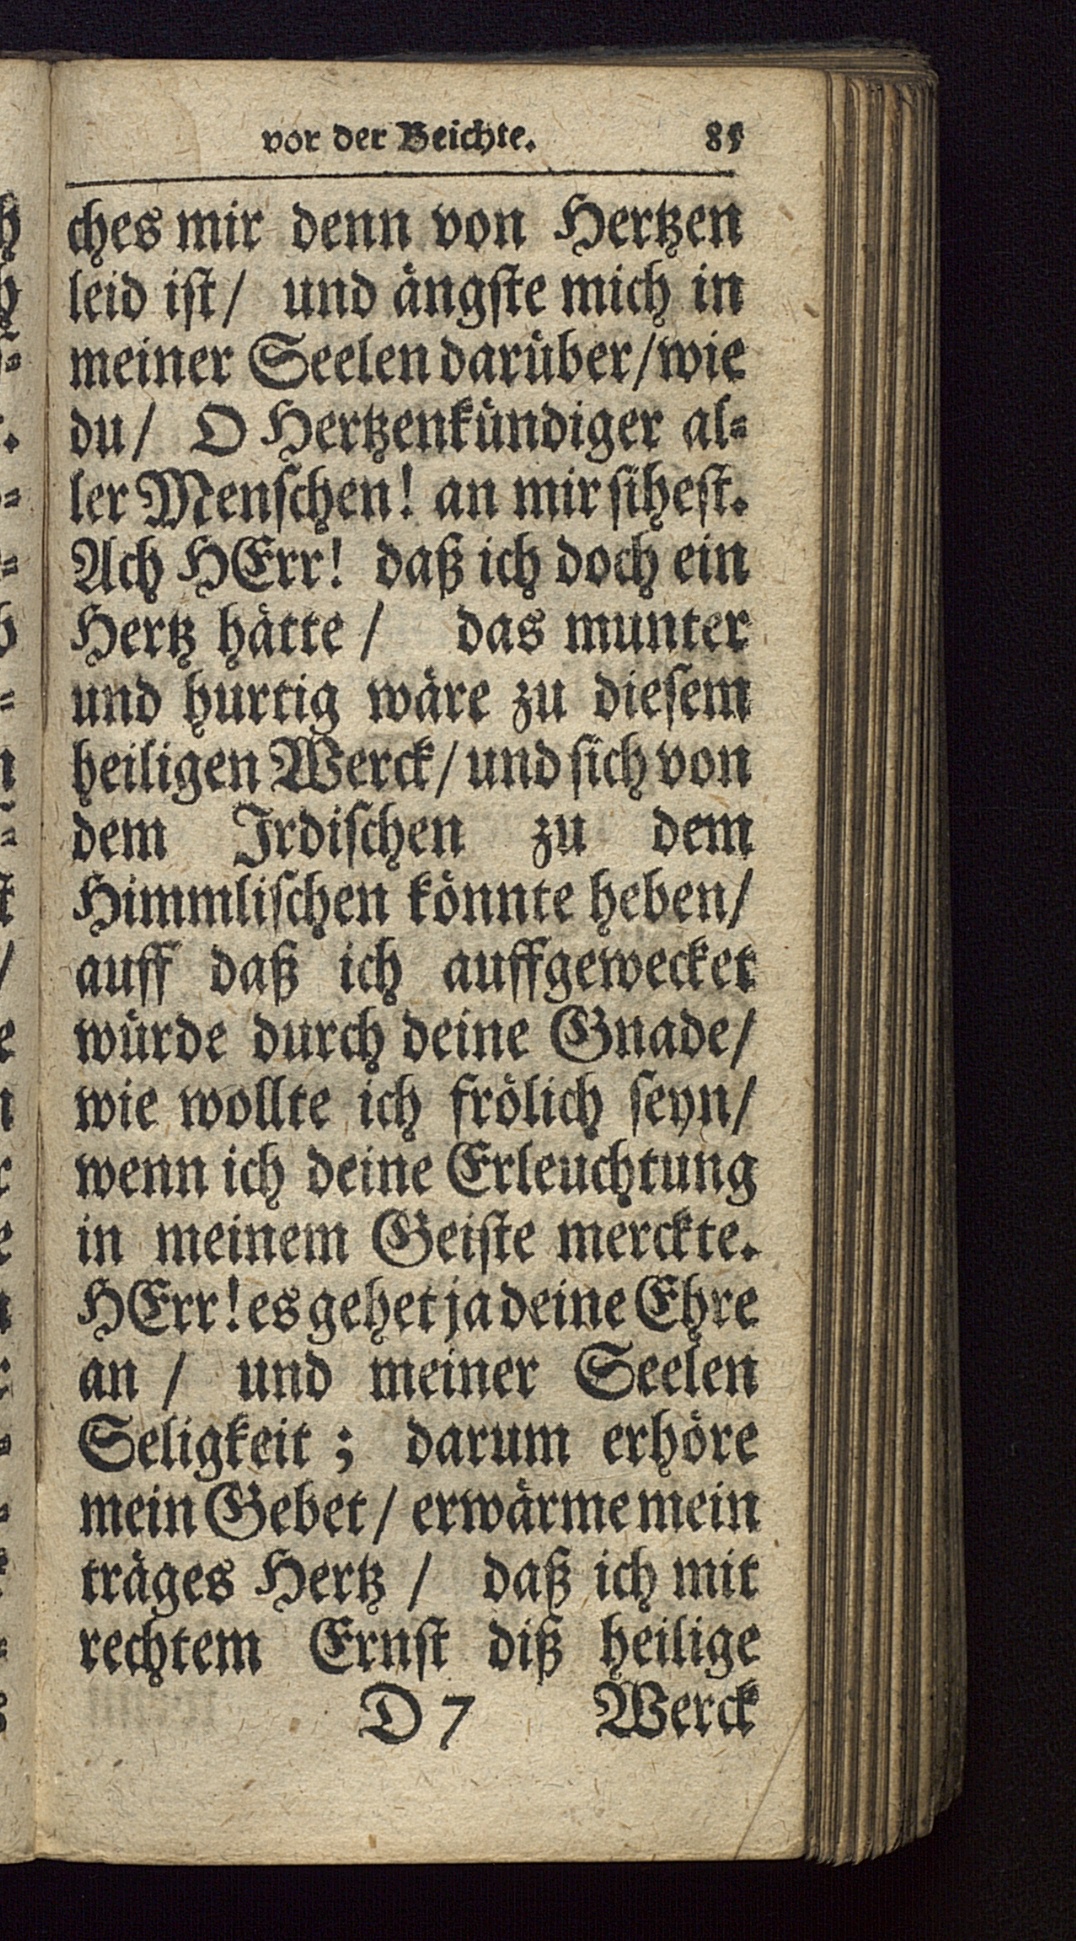 vor der Beichte. 85
ches mir denn von Hertzen
leid ist/ und ängste mich in
meiner Seelen darüber/wie
du/ O Hertzenkündiger al-
ler Menschen! an mir sihest.
Ach HErr! daß ich doch ein
Hertz hätte / das munter
und hurtig wäre zu diesem
heiligen Werck/und sich von
dem Irdischen zu dem
Himmlischen könnte heben/
auff daß ich auffgewecket
würde durch deine Gnade/
wie wollte ich frölich seyn/
wenn ich deine Erleuchtung
in meinem Geiste merckte.
HErr! es gehet ja deine Ehre
an / und meiner Seelen
Seligkeit ; darum erhöre
mein Gebet/ erwärme mein
träges Hertz / daß ich mit
rechtem Ernst diß heilige
D 7 Werck